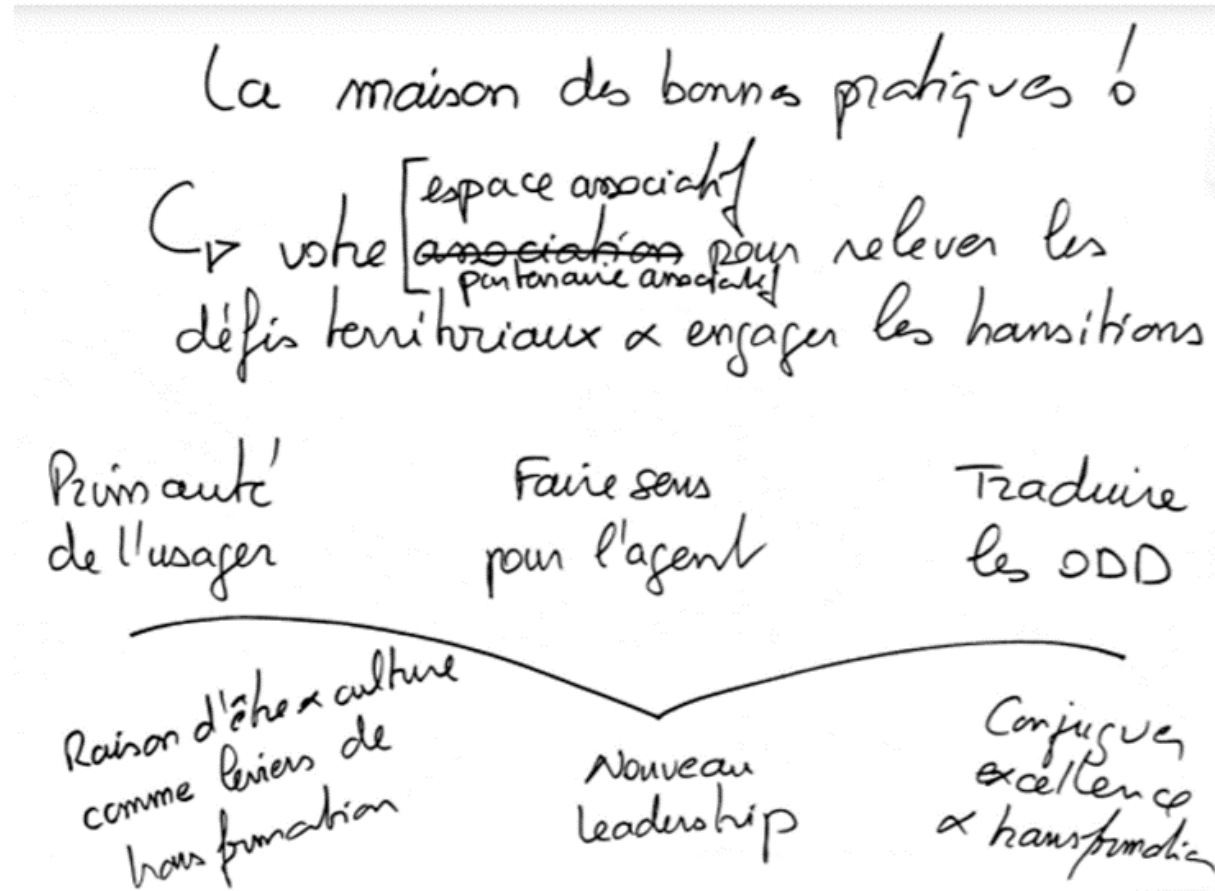 La maison des bonnes pratiques !
espace associatif
↳ votre [association pour relever les
partenaire associatif
défis territoriaux & engager les transitions
Primauté
de l'usager
Faire sens
pour l'agent
Traduire
les ODD
Raison d'être & culture
comme leviers de
transformation
Nouveau
leadership
Conjuguer
excellence
& transformation